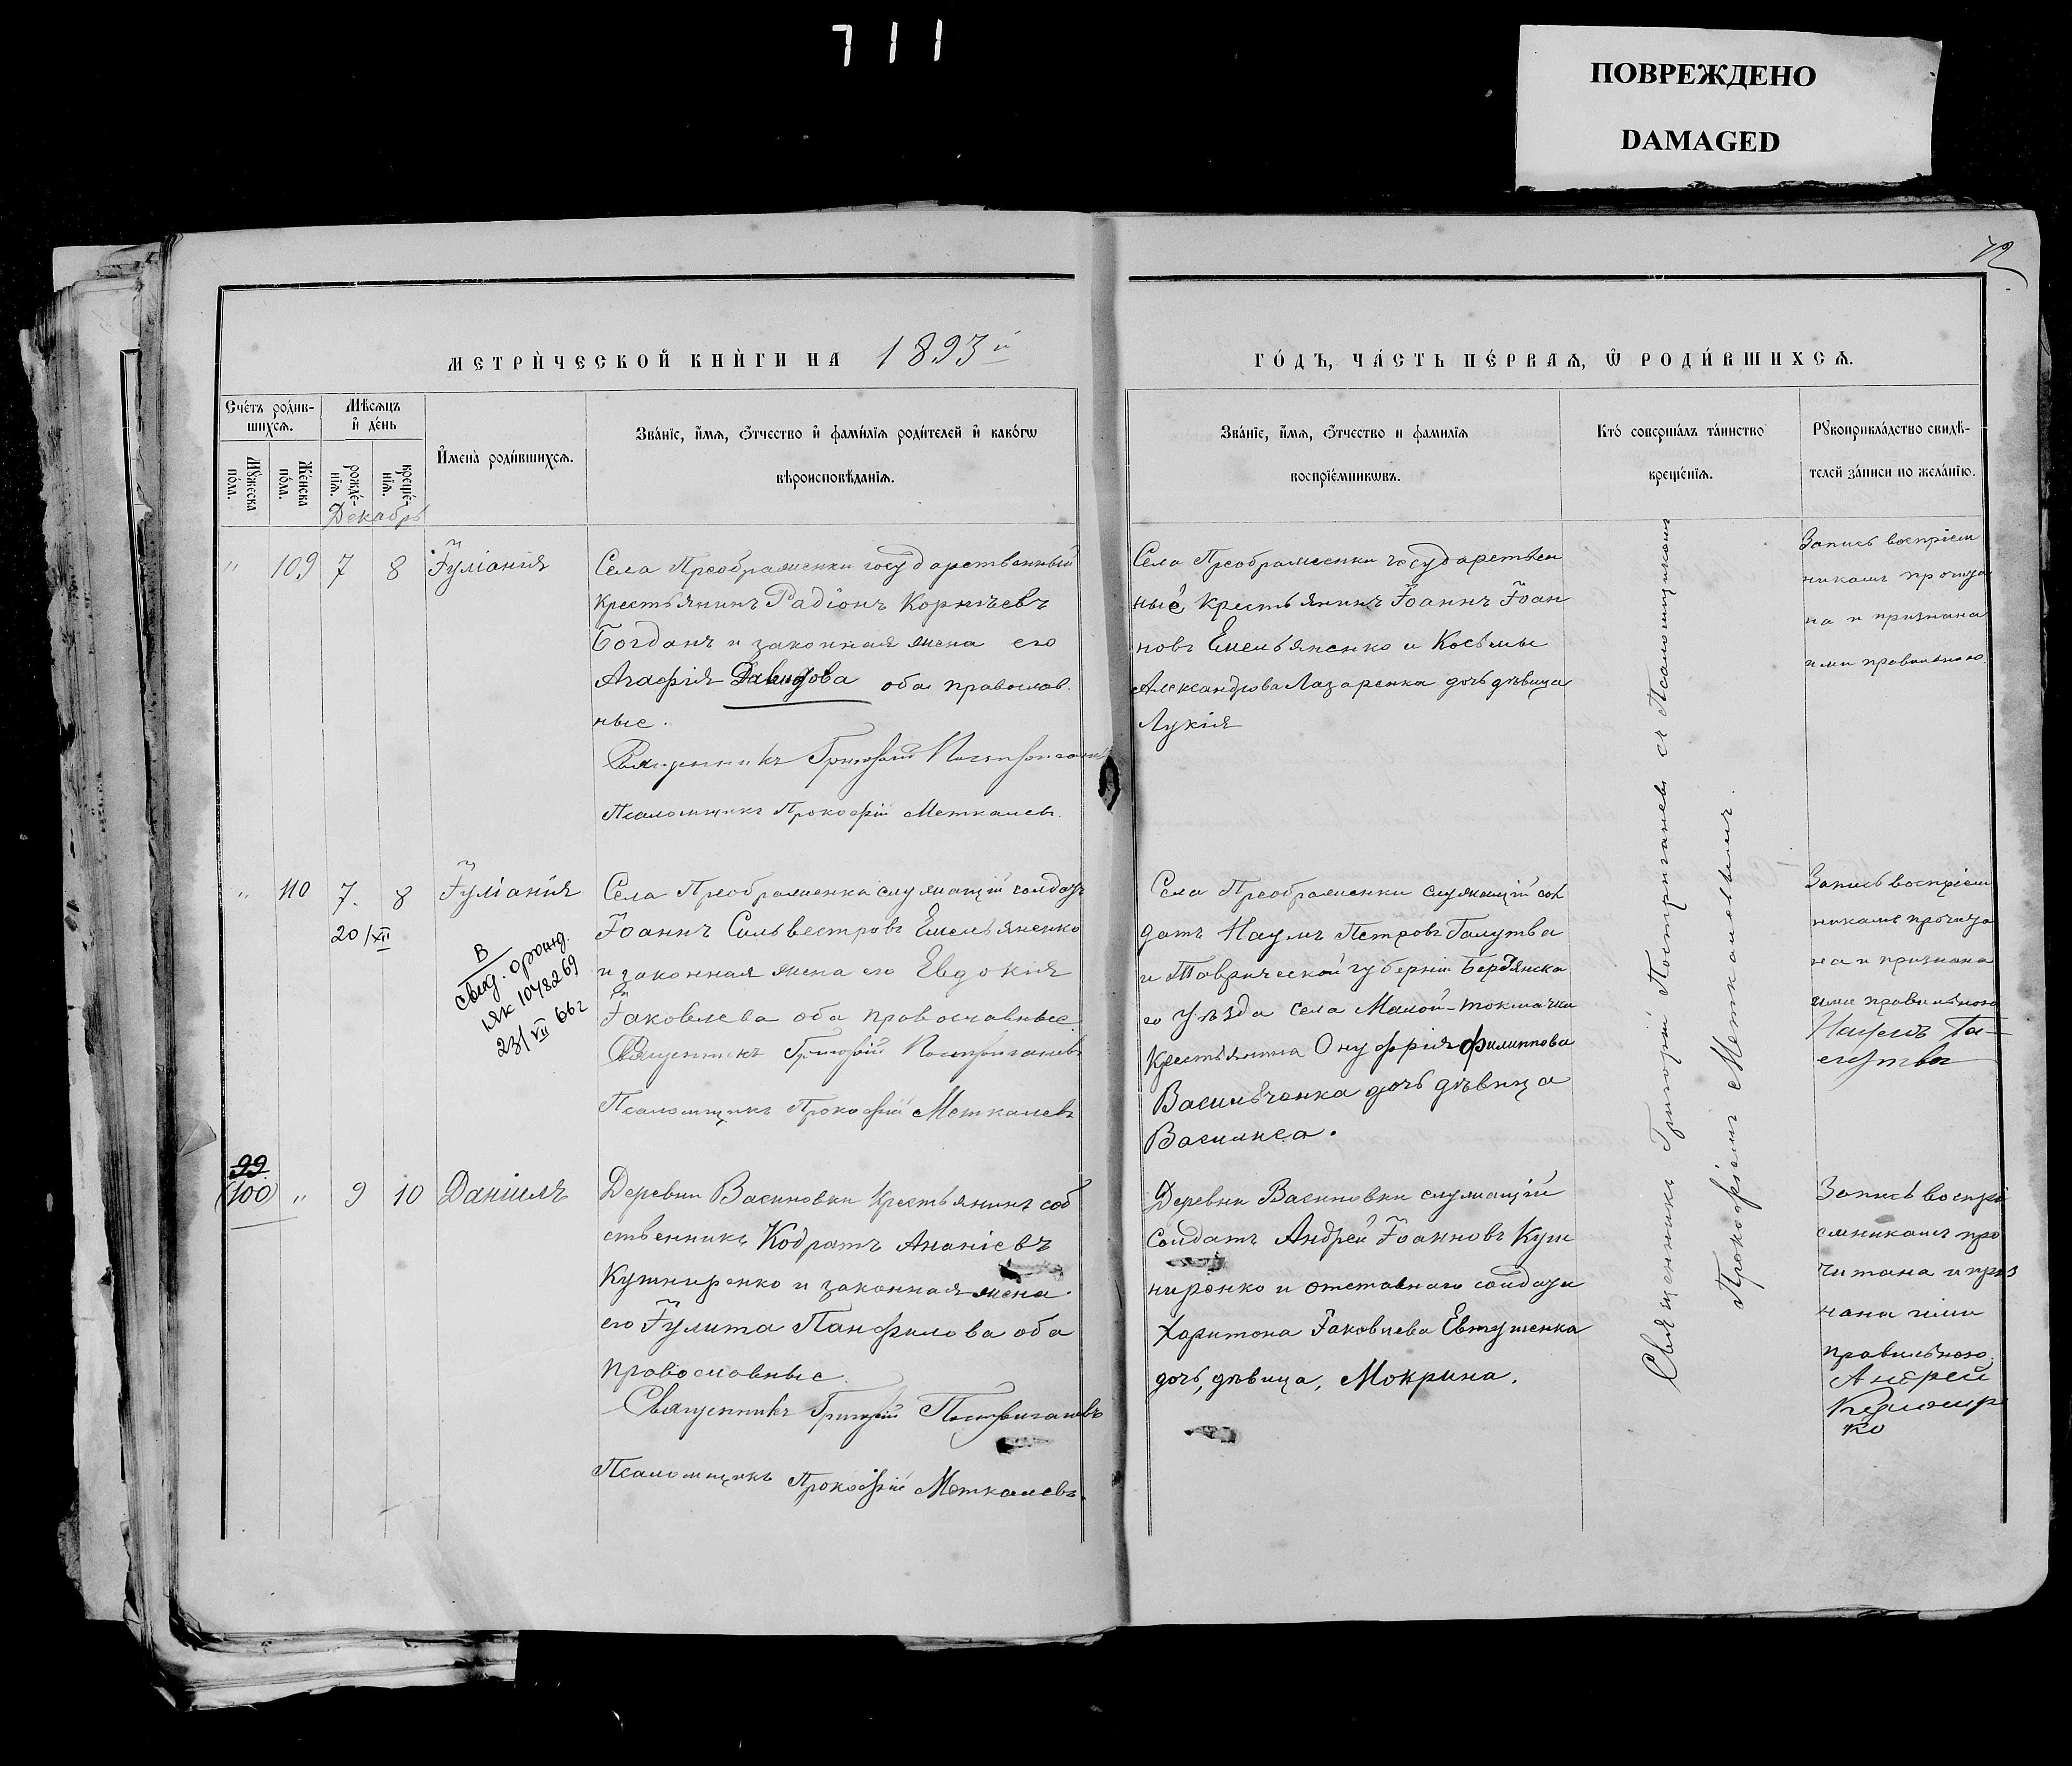 711
ПОВРЕЖДЕНО
DAMAGED
72
МЕТРИ́ЧЕСКОЙ КНИ́ГИ НА 1893й
ГО́ДЪ, ЧА́СТЬ ПЕ́РВАѦ, Ѿ РОДИ́ВШИХСѦ.
Сче́тъ роди́в-
шихсѧ.
Мꙋ́жеска по́ла.
Же́нска по́ла.
Мѣ́сѧцъ
и҆ де́нь
рожде́-
нїѧ.
креще́-
нїѧ.
Декабрь
И҆мена̀ роди́вшихсѧ.
Зва́нїе, и҆́мѧ, ѻ҆́тчество и҆ фами́лїѧ роди́телей и҆ како́гѡ
вѣроисповѣ́данїѧ.
Зва́нїе, и҆́мѧ, ѻ҆́тчество и фамилїѧ
воспрїе́мникѡвъ.
Кто́ соверша́лъ та́инство
креще́нїѧ.
Рꙋкоприкла́дство свидѣ́-
телей за́писи по жела́нїю.
" 109 7 8 Іуліанія
Села Преображенки государственный
крестьянинъ Радіонъ Корнѣевъ
Богданъ и законная жена его
Агафія Давидова оба православ
ные.
Священникъ Григорій Постригачевъ
Псаломщикъ Прокофій Меткалевъ.
Села Преображенки государствен
ные крестьянинъ Іоаннъ Іоан
новъ Емельяненко и Косьмы
Александрова Лазаренка дочь дѣвица
Лукія
Запись воспріем
никамъ прочита
на и признана
ими правильною.
" 110 7. 8 Іуліанія
20/XII
В
свид. о рожд.
ІЯК 1048269
23/XII 66г
Села Преображенка служащій солдатъ
Іоаннъ Сильвестровъ Емельяненко
и законная жена его Евдокія
Іаковлева оба православные
Священникъ Григорій Постригачевъ
Псаломщикъ Прокофій Меткалевъ
Села Преображенки служащій сол
датъ Наумъ Петровъ Галутва
и Таврической губерніи Бердянска
го уѣзда села Малой-токмачки
крестьянина Онуфрія Филиппова
Васильченка дочь дѣвица
Василиса.
Запись воспріем
никамъ прочита
на и признана
ими правильною
Наумъ Га-
лутва
99
(100) " 9 10 Даніилъ
Деревни Васиновки крестьянинъ соб
ственникъ Кодратъ Ананіевъ
Кушниренко и законная жена
его Іулита Панфилова оба
православные.
Священникъ Григорій Постригачевъ
Псаломщикъ Прокофій Меткалевъ.
Деревни Васиновки служащій
солдатъ Андрей Іоанновъ Куш
ниренко и отставнаго солдата
Харитона Іаковлева Евтушенка
дочь, дѣвица, Мокрина.
Запись воспрі
емникамъ про
читана и приз
нана ими
правильною.
Андрей
Кушнире
ко
Священникъ Григорій Постригачевъ съ Псаломщикомъ
Прокофіемъ Меткалевымъ.